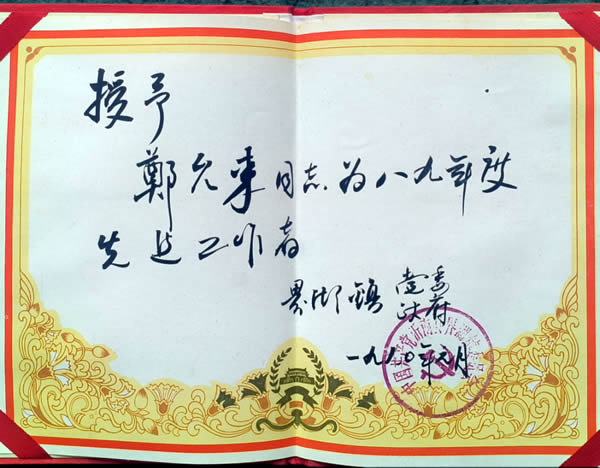 授予
鄭允来同志为八九年度
先进工作者
界湖镇党委
政府
一九九〇年元月
中国共产党沂南县界湖镇委员会